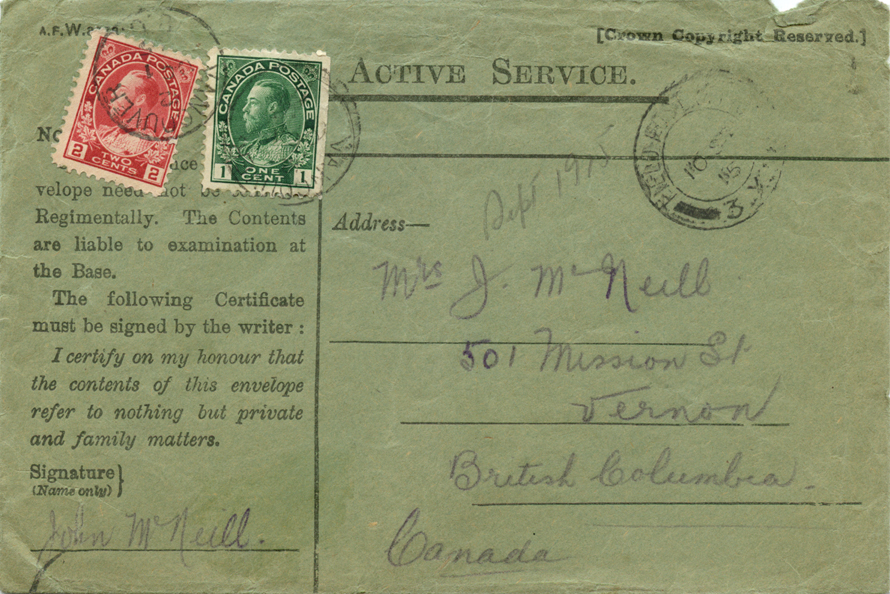 A.F.W.
[Crown Copyright Reserved.]
CANADA POSTAGE
2 TWO CENTS 2
CANADA POSTAGE
1 ONE CENT 1
ACTIVE SERVICE.
FIELD
3
velope need not be
Regimentally. The Contents
are liable to examination at
the Base.
The following Certificate
must be signed by the writer :
I certify on my honour that
the contents of this envelope
refer to nothing but private
and family matters.
Signature }
(Name only)
John McNeill.
Sept 1915
Address—
Mrs J. McNeill
501 Mission St
Vernon
British Columbia.
Canada